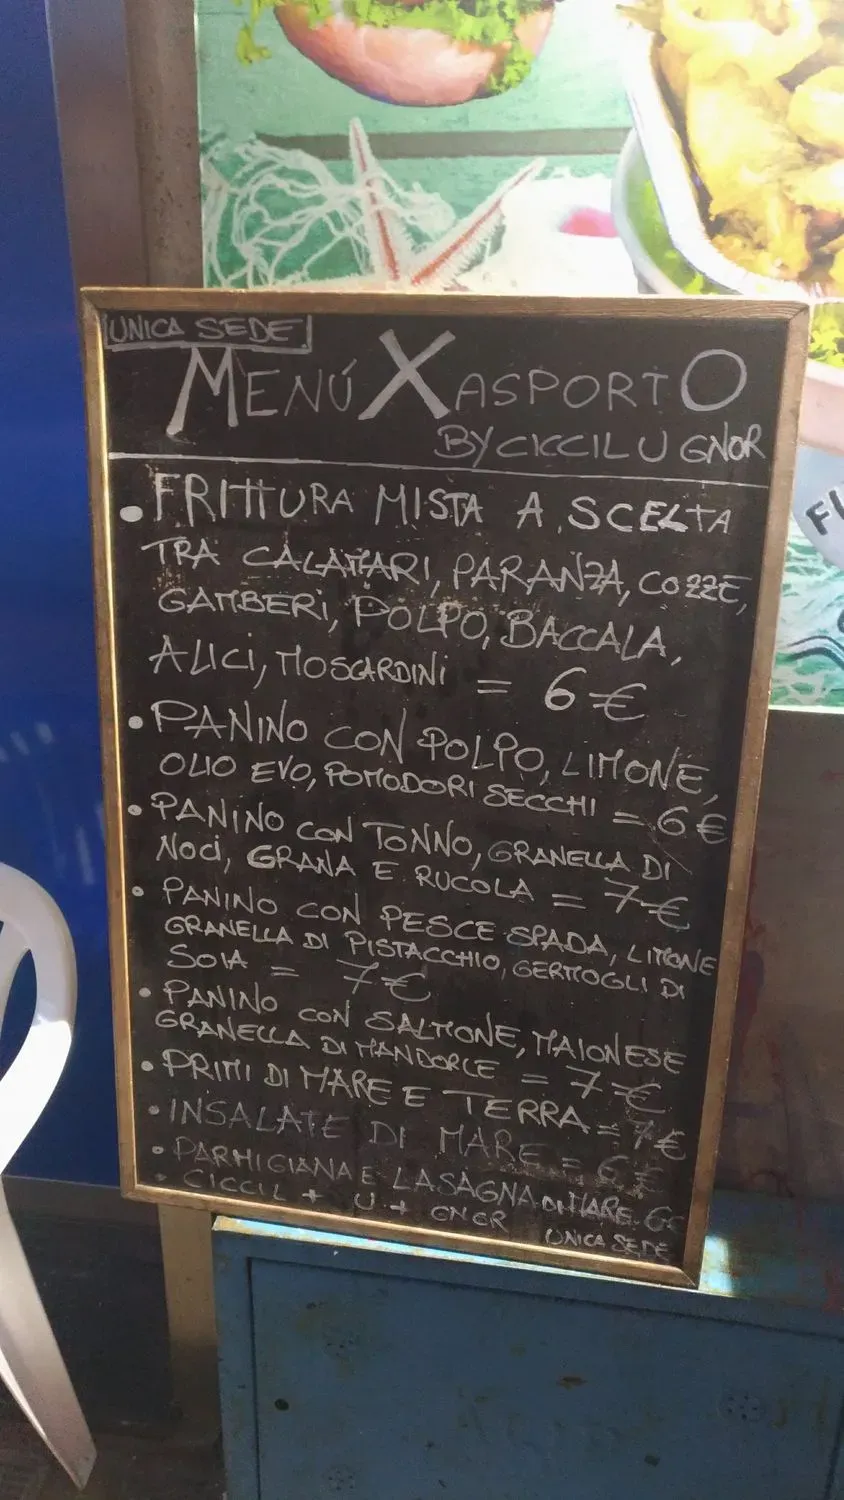 UNICA SEDE!
MENÚ X ASPORTO
BY CICCIL U GNOR
• FRITTURA MISTA A SCELTA
TRA CALAMARI, PARANZA, COZZE,
GAMBERI, POLPO, BACCALA,
ALICI, MOSCARDINI = 6€
• PANINO CON POLPO, LIMONE,
OLIO EVO, POMODORI SECCHI = 6€
• PANINO CON TONNO, GRANELLA DI
NOCI, GRANA E RUCOLA = 7€
• PANINO CON PESCE SPADA, LIMONE
GRANELLA DI PISTACCHIO, GERMOGLI DI
SOIA = 7€
• PANINO CON SALMONE, MAIONESE
GRANELLA DI MANDORLE = 7€
• PRIMI DI MARE E TERRA = 7€
• INSALATE DI MARE = 6€
• PARMIGIANA E LASAGNA DI MARE 6€
• CICCIL + U + GNOR UNICA SEDE